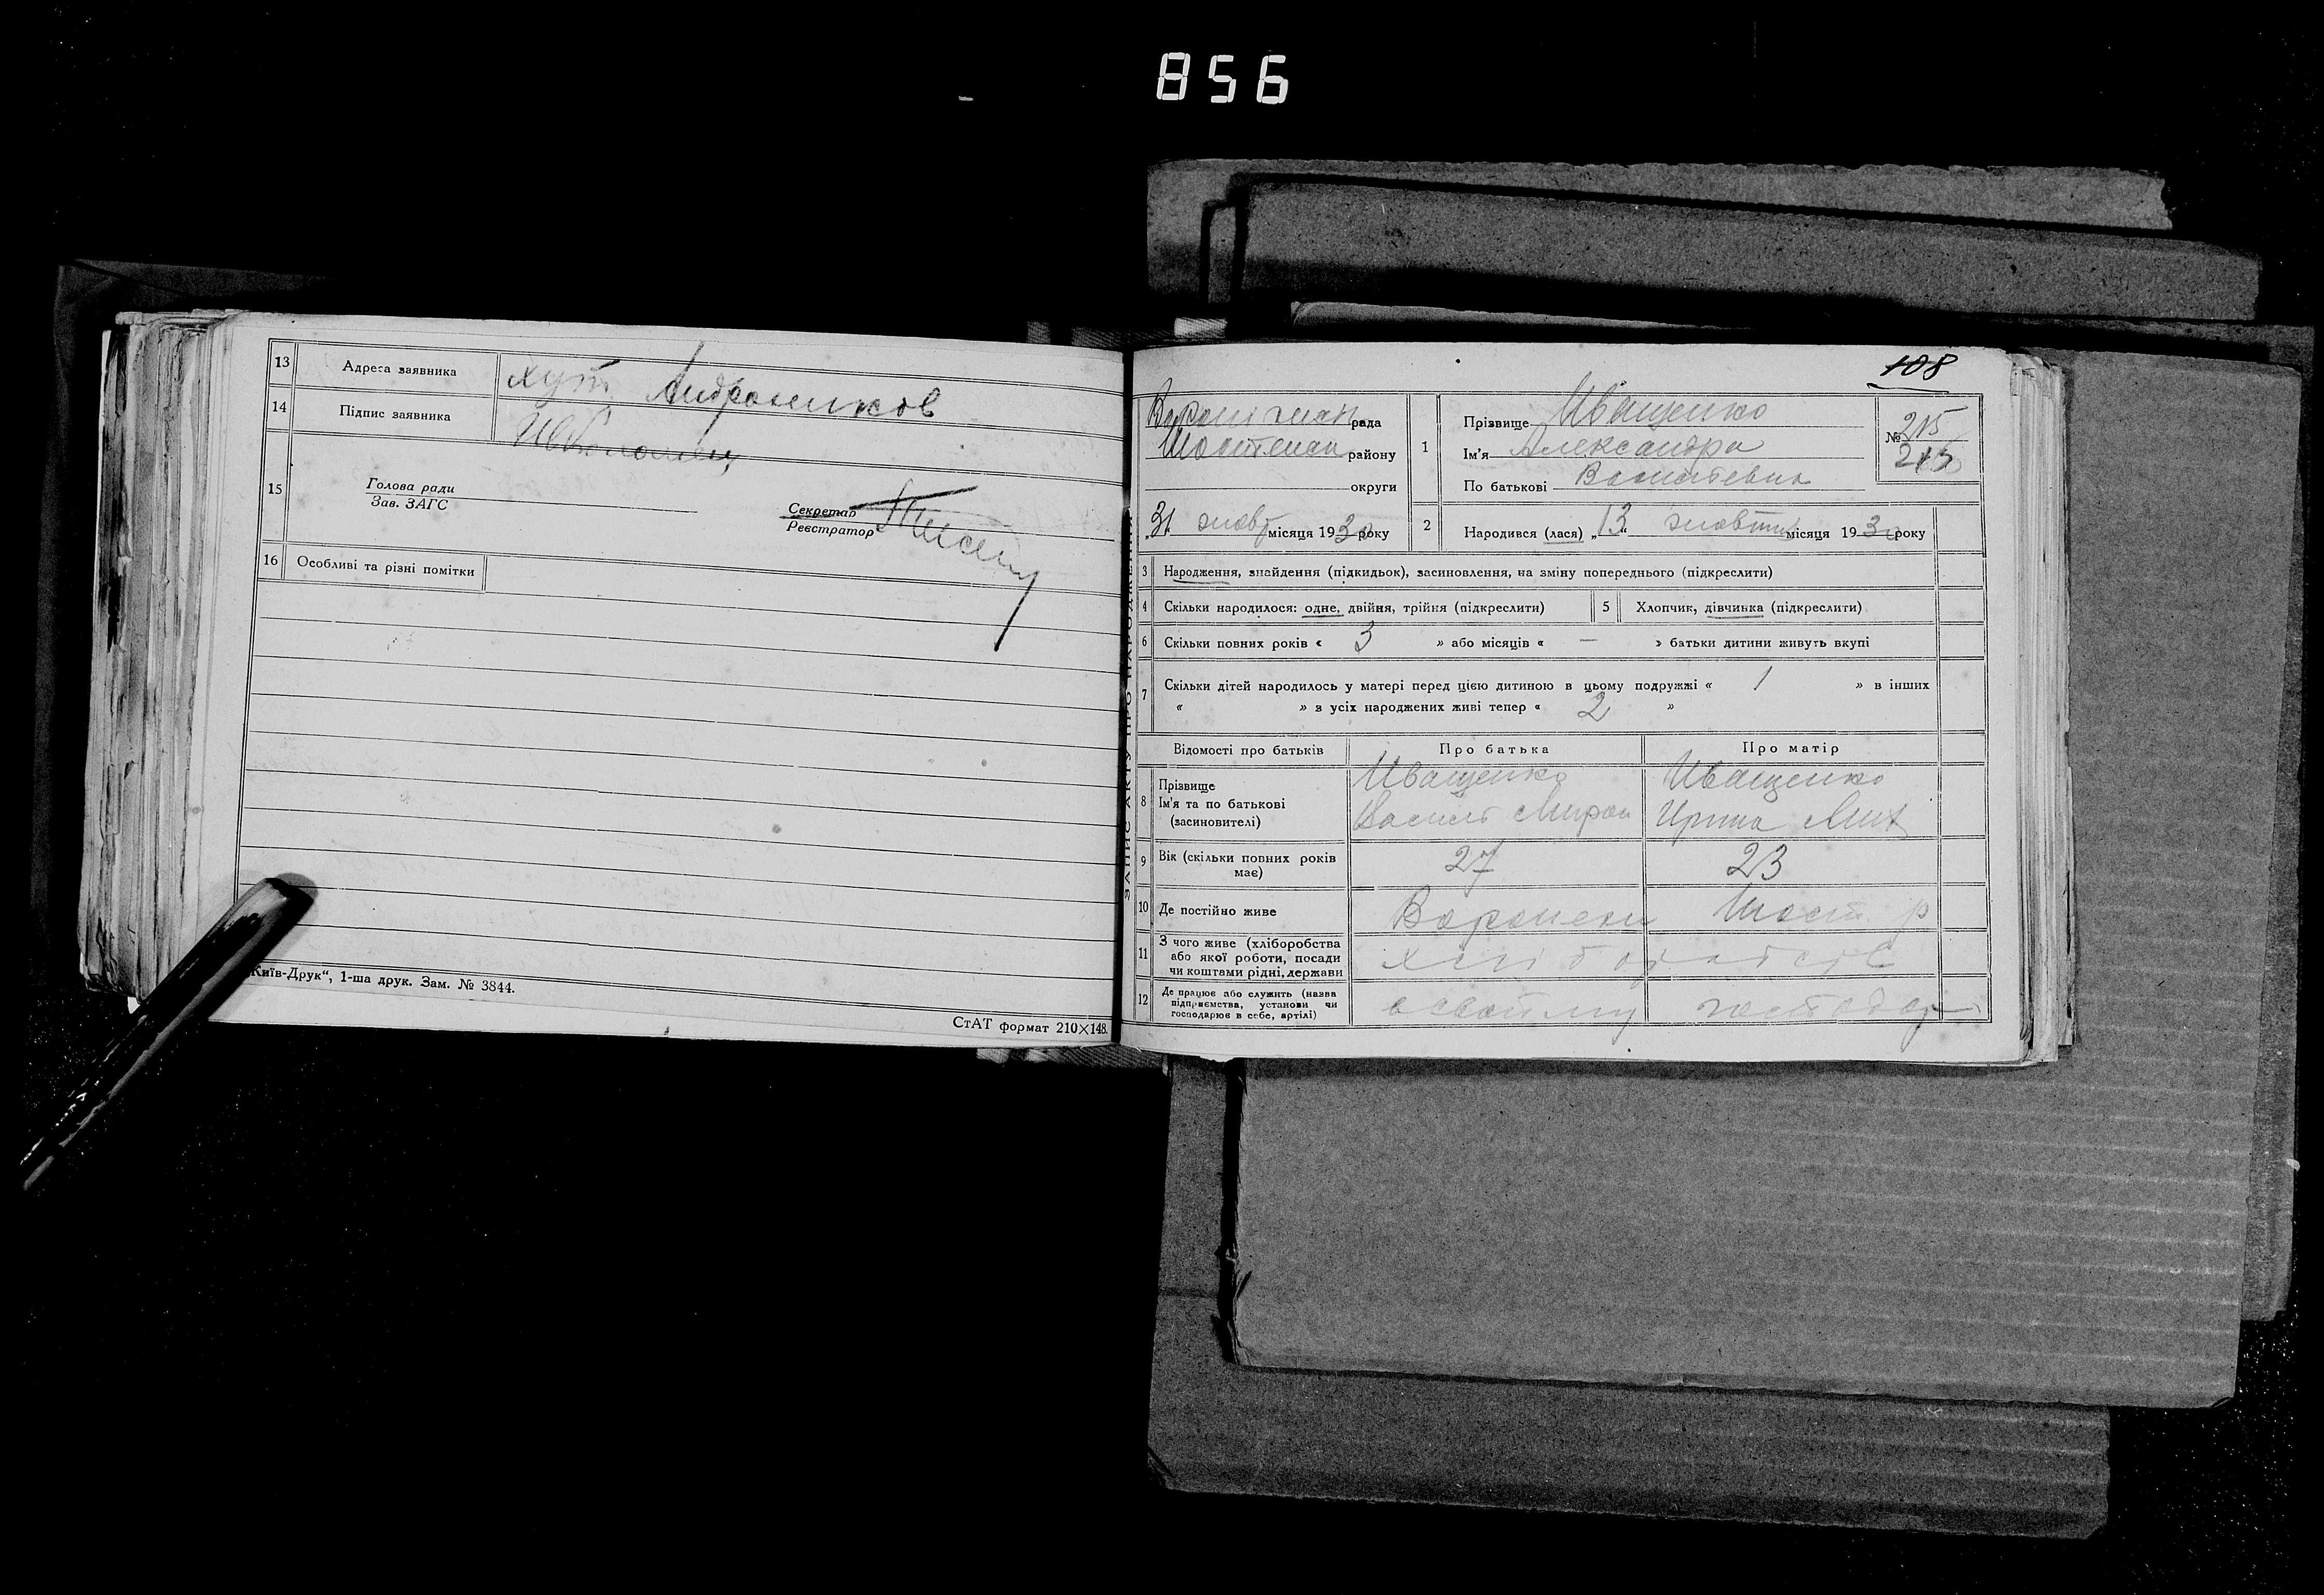 856
13 Адреса заявника хут. Андроников
14 Підпис заявника
15 Голова ради
Зав. ЗАГС
Секретар
Реєстратор
16 Особливі та різні помітки
Київ-Друк“, 1-ша друк. Зам. № 3844.
СтАТ формат 210×148.
ЗАПИС АКТУ ПРО НАРОДЖЕННЯ
108
рада
району
округи
„31 жовт місяця 1930 року
1 Прізвище Иващенко
Ім'я Александра
По батькові Васильевна
№ 215
215
2 Народився (лася) „13“ місяця 1930 року
3 Народження, знайдення (підкидьок), засиновлення, на зміну попереднього (підкреслити)
4 Скільки народилося: одне, двійня, трійня (підкреслити) 5 Хлопчик, дівчинка (підкреслити)
6 Скільки повних років « 3 » або місяців « — » батьки дитини живуть вкупі
7 Скільки дітей народилось у матері перед цією дитиною в цьому подружжі « 1 » в інших
« » з усіх народжених живі тепер « 2 »
Відомості про батьків Про батька Про матір
8 Прізвище
Ім'я та по батькові
(засиновителі)
Иващенко
Василь Мирон
Иващенко
Ирина Мих
9 Вік (скільки повних років
має)
27 23
10 Де постійно живе Шост р
11 З чого живе (хліборобства
або якої роботи, посади
чи коштами рідні, держави
12 Де працює або служить (назва
підприємства, установи чи
господарює в себе, артілі)